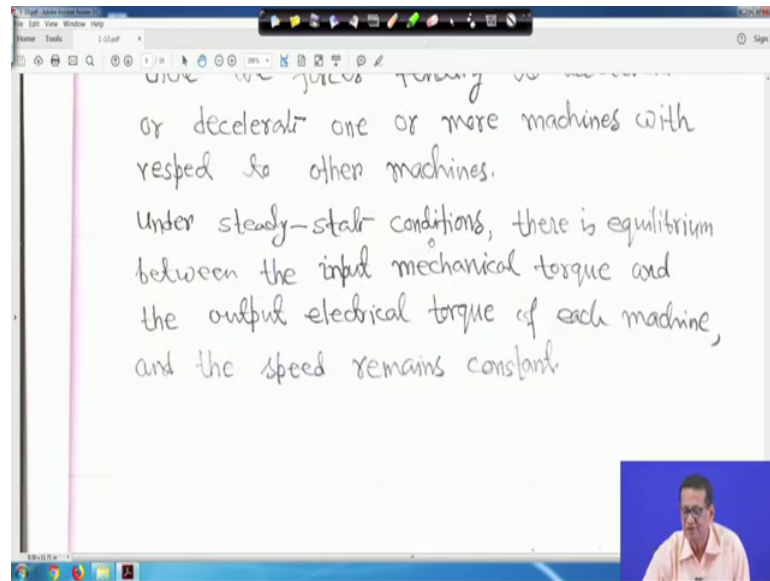 1-10.pdf - Adobe Acrobat Reader DC
File Edit View Window Help
Home Tools 1-10.pdf × Sign
9 / 10 200%
or decelerate one or more machines with
resped to other machines.
Under steady-state conditions, there is equilibrium
between the input mechanical torque and
the output electrical torque of each machine,
and the speed remains constant.
8.50 x 11.71 in